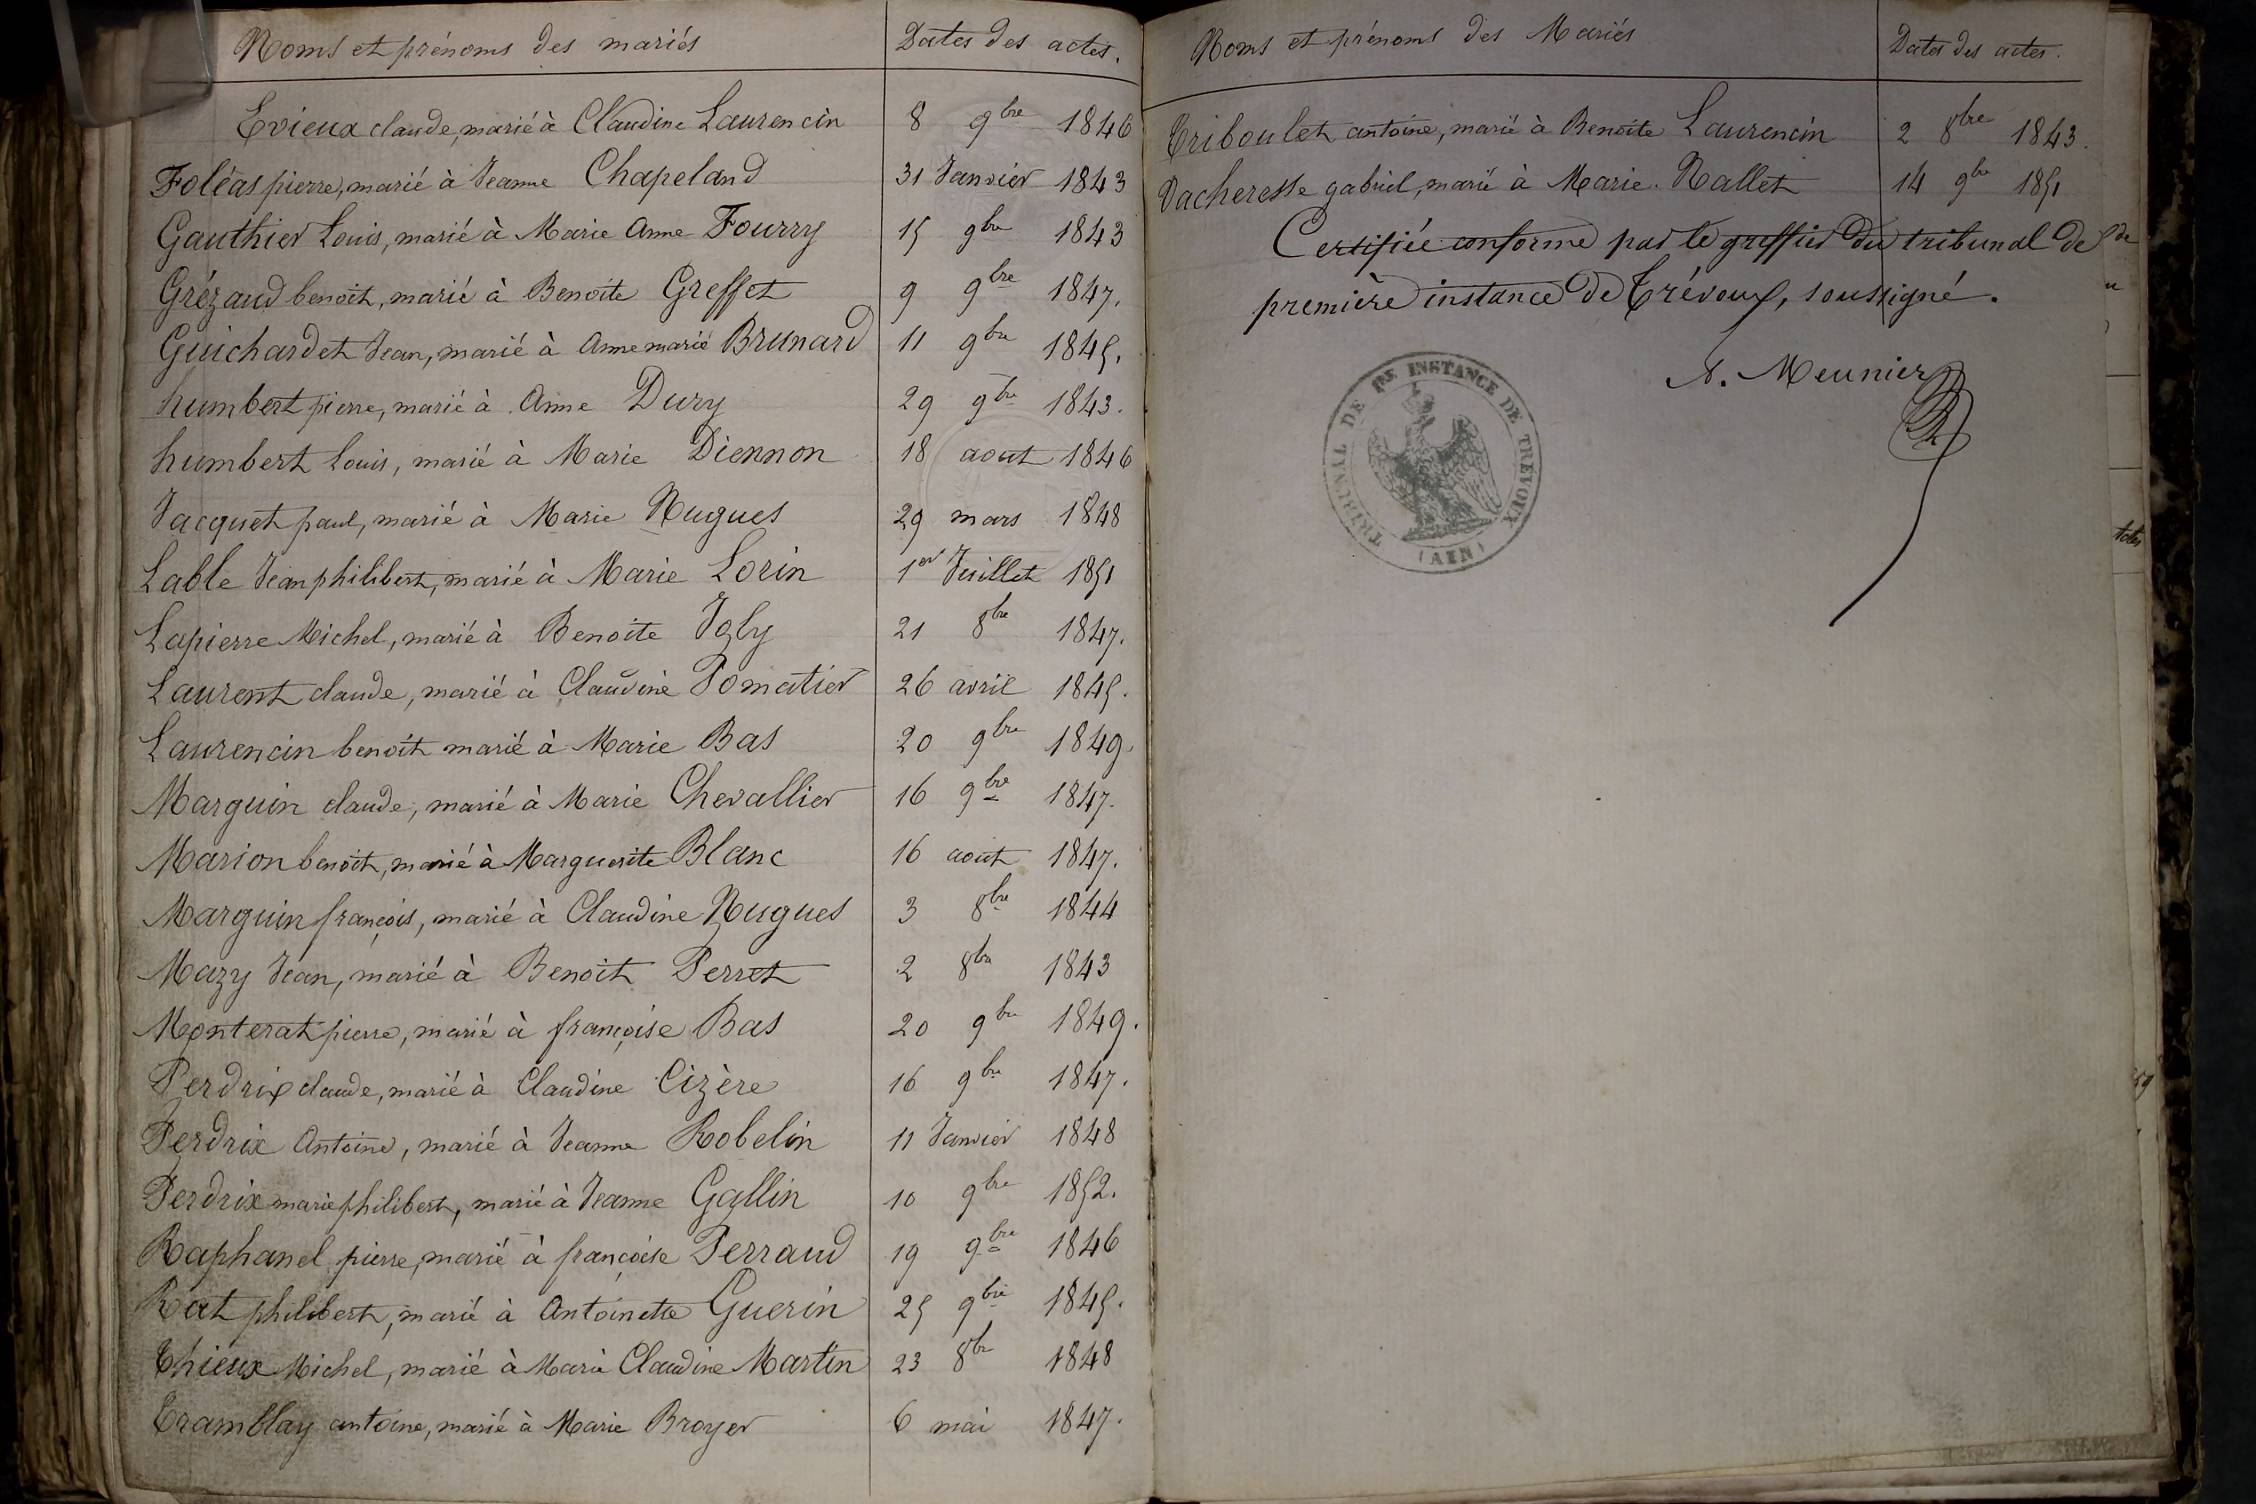 Noms et prénoms des mariés Dates des actes.
Evieux claude, marié à Claudine Laurencin 8 9bre 1846
Foléas pierre, marié à Jeanne Chapeland 31 Janvier 1843
Gauthier Louis, marié à Marie Anne Fourry 15 9bre 1843
Grézaud benoit, marié à Benoite Greffet 9 9bre 1847.
Guichardet Jean, marié à Anne marie Brunard 11 9bre 1845.
humbert pierre, marié à Anne Dury 29 9bre 1843.
humbert Louis, marié à Marie Diennon 18 aout 1846
Jacquet paul, marié à Marie Nugues 29 mars 1848
Lable Jean philibert, marié à Marie Lorin 1er Juillet 1851
Lapierre Michel, marié à Benoite Joly 21 8bre 1847.
Laurent claude, marié à Claudine Pomatier 26 avril 1845.
Laurencin benoit marié à Marie Bas 20 9bre 1849.
Marguin claude, marié à Marie Chevallier 16 9bre 1847.
Marion benoit, marié à Marguerite Blanc 16 aout 1847.
Marguin françois, marié à Claudine Nugues 3 8bre 1844
Mazy Jean, marié à Benoit Perret 2 8bre 1843
Monterat pierre, marié à françoise Bas 20 9bre 1849.
Perdrix claude, marié à Claudine Cizère 16 9bre 1847.
Perdrix Antoine, marié à Jeanne Robelin 11 Janvier 1848
Perdrix marie philibert, marié à Jeanne Gallin 10 9bre 1852.
Raphanel pierre, marié à françoise Perraud 19 9bre 1846
Rat philibert, marié à Antoinette Guerin 25 9bre 1845.
Thieux Michel, marié à Marie Claudine Martin 23 8bre 1848
Tramblay antoine, marié à Marie Broyer 6 mai 1847.
Noms et prénoms des Mariés Dates des actes.
Triboulet antoine, marié à Benoite Laurencin 2 8bre 1843.
Vacheresse gabriel, marié à Marie. Nallet 14 9bre 1851
Certifiée conforme par le greffier du tribunal de
première instance de Trévoux, soussigné.
N. Meunier
TRIBUNAL DE 1RE INSTANCE DE TRÉVOUX
(AIN)